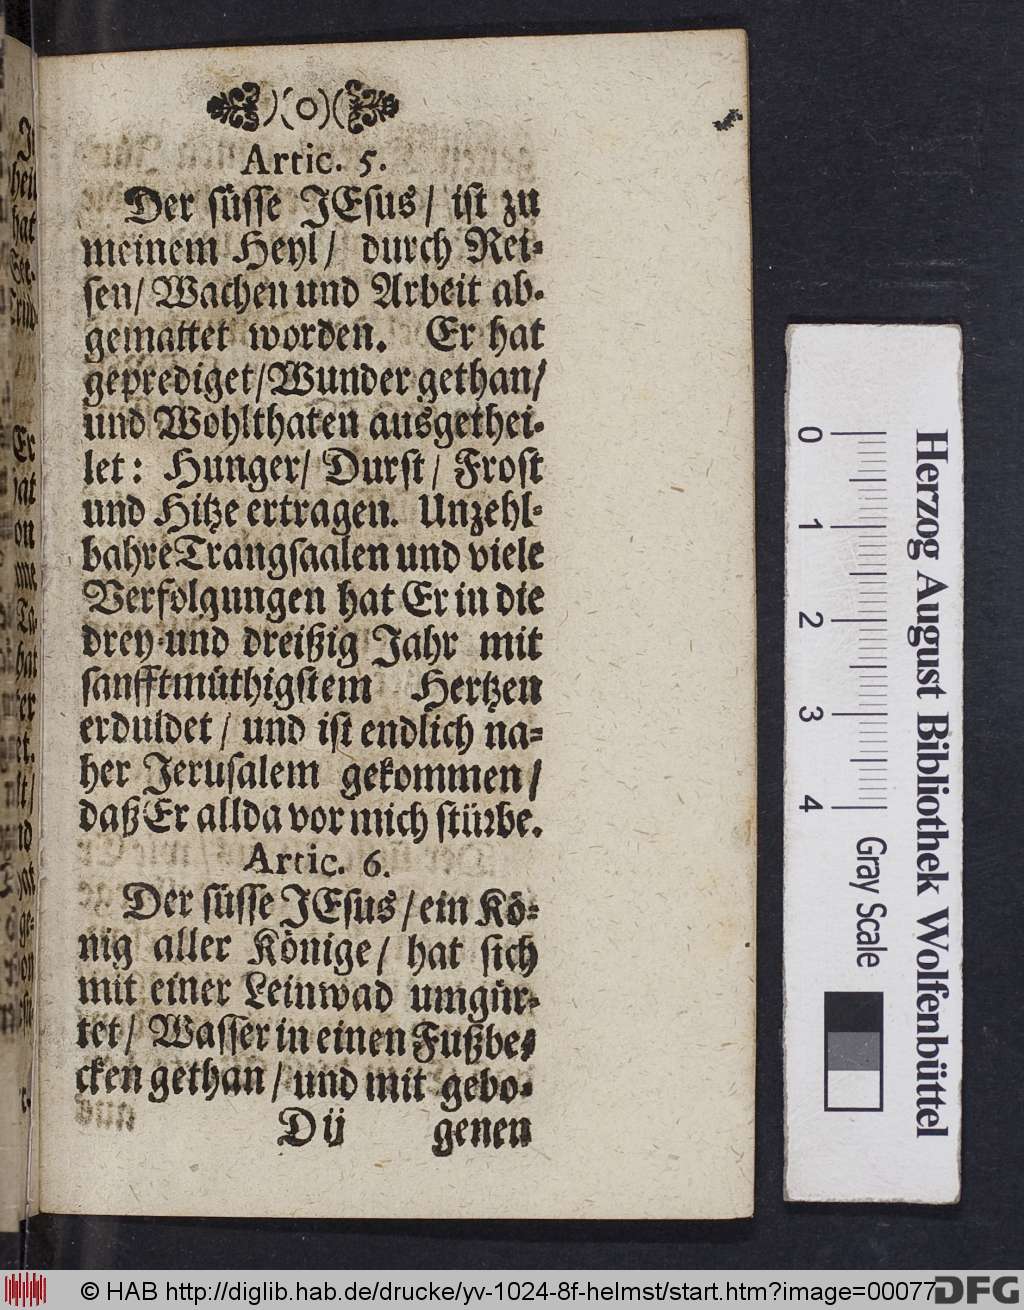 )(o)(
Artic. 5.
Der süsse JEsus/ ist zu
meinem Heyl/ durch Rei-
sen/ Wachen und Arbeit ab-
gemattet worden. Er hat
geprediget/ Wunder gethan/
und Wohlthaten ausgethei-
let: Hunger/ Durst/ Frost
und Hitze ertragen. Unzehl-
bahre Trangsaalen und viele
Verfolgungen hat Er in die
drey-und dreißig Jahr mit
sanfftmüthigstem Hertzen
erduldet/ und ist endlich na-
her Jerusalem gekommen/
daß Er allda vor mich stürbe.
Artic. 6.
Der süsse JEsus/ ein Kö-
nig aller Könige/ hat sich
mit einer Leinwad umgür-
tet/ Wasser in einen Fußbe-
cken gethan/ und mit gebo-
D ij genen
0 1 2 3 4
Gray Scale
Herzog August Bibliothek Wolfenbüttel
© HAB http://diglib.hab.de/drucke/yv-1024-8f-helmst/start.htm?image=00077
DFG